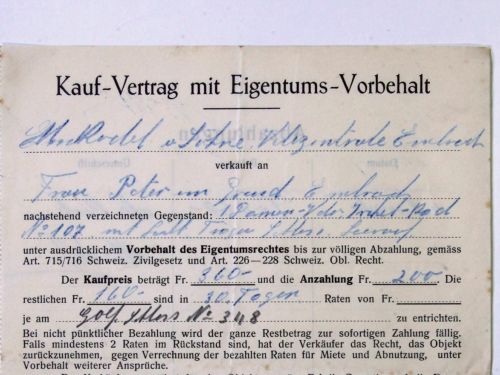 Kauf-Vertrag mit Eigentums-Vorbehalt
Velozentrale Embrach
verkauft an
Frau Peter im Grund Embrach
nachstehend verzeichneten Gegenstand: 1 Damen-Velo Rad
No 107 mit
unter ausdrücklichem Vorbehalt des Eigentumsrechtes bis zur völligen Abzahlung, gemäss
Art. 715/716 Schweiz. Zivilgesetz und Art. 226—228 Schweiz. Obl. Recht.
Der Kaufpreis beträgt Fr. 360.- und die Anzahlung Fr. 200. Die
restlichen Fr. 160.- sind in 30 Tagen Raten von Fr.
je am No 348 zu entrichten.
Bei nicht pünktlicher Bezahlung wird der ganze Restbetrag zur sofortigen Zahlung fällig.
Falls mindestens 2 Raten im Rückstand sind, hat der Verkäufer das Recht, das Objekt
zurückzunehmen, gegen Verrechnung der bezahlten Raten für Miete und Abnutzung, unter
Vorbehalt weiterer Ansprüche.